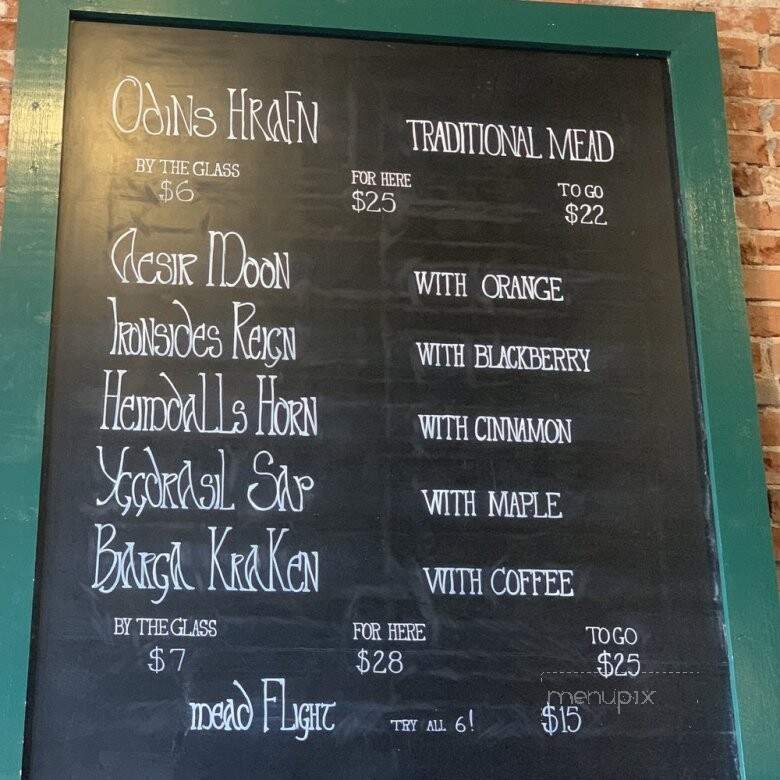 Odins Hrafn TRADITIONAL MEAD
BY THE GLASS FOR HERE TO GO
$6 $25 $22
Aesir Moon WITH ORANGE
Ironsides Reign WITH BLACKBERRY
Heimdalls Horn WITH CINNAMON
Yggdrasil Sap WITH MAPLE
Barga Kraken WITH COFFEE
BY THE GLASS FOR HERE TO GO
$7 $28 $25
mead Flight TRY ALL 6! $15
menupix